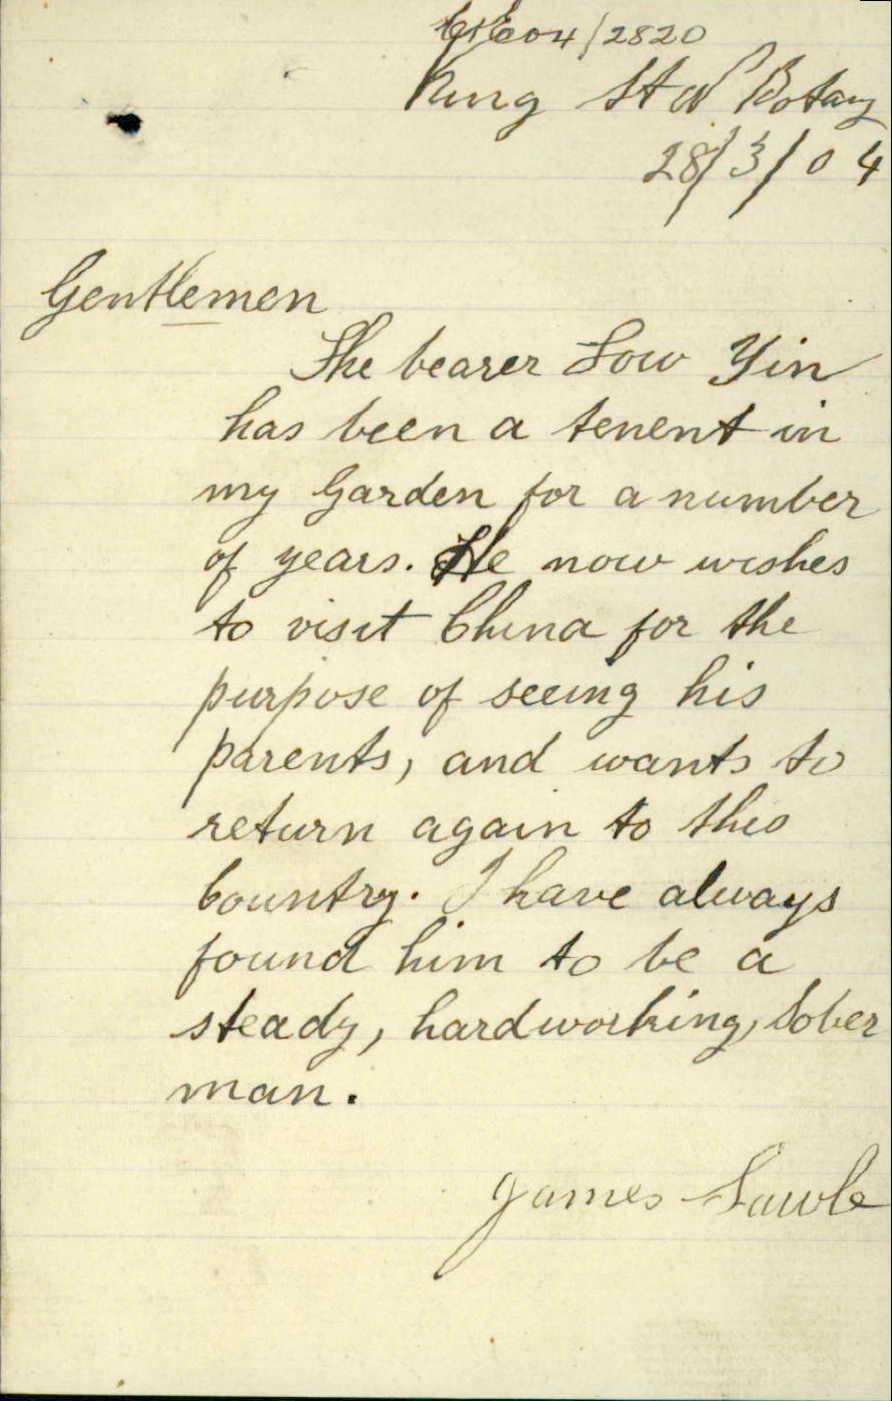 C&E04/2820
King St W Botany
28/3/04
Gentlemen
The bearer Low Yin
has been a tenent in
my Garden for a number
of years. He now wishes
to visit China for the
purpose of seeing his
parents, and wants to
return again to this
Country. I have always
found him to be a
steady, hardworking, Sober
man.
James Sawle